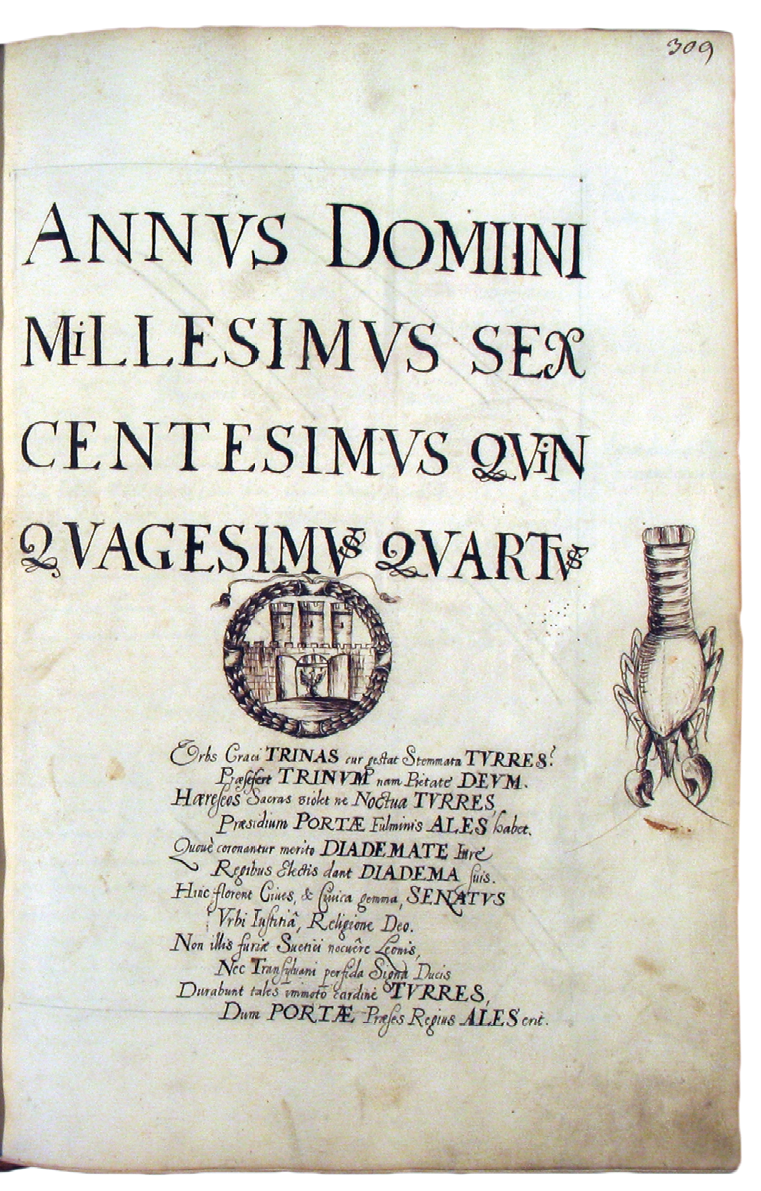 309
ANNVS DOMIINI
MiLLESIMVS SEX
CENTESIMVS QViN
QVAGESIMVS QVARTVS
Vrbs Graci TRINAS cur gestat Stemmata TVRRES?
Præsefert TRINVM nam Pietate DEVM.
Hæreseos Sacras violet ne Noctua TVRRES
Præsidium PORTÆ Fulminis ALES habet.
Quoue coronantur merito DIADEMATE Iure
Regibus Electis dant DIADEMA suis.
Hinc florent Ciues, & Ciuica gemma, SENATVS
Vrbi Iustitiâ, Religione Deo.
Non illis furiæ Suetici nocuêre Leonis,
Nec Transyluani perfida Signa Ducis
Durabunt tales immoto cardine TVRRES,
Dum PORTÆ Præses Regius ALES erit.